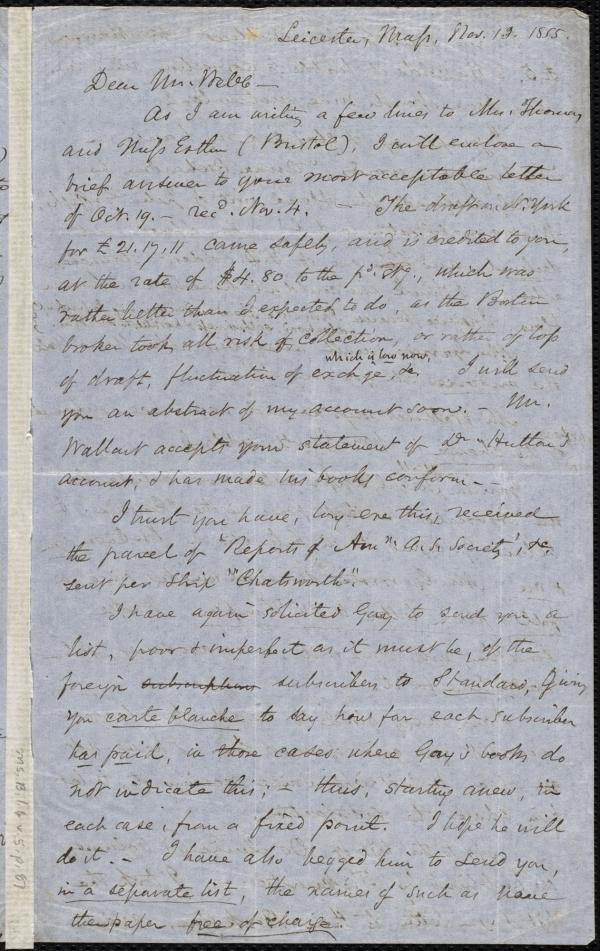 Leicester, Mass, Nov. 13. 1855.
Dear Mr. Webb —
As I am writing a few lines to Mrs. Thomas
and Miss Esther (Bristol), I will enclose a
brief answer to your most acceptable letter
of Oct. 19. – recd. Nov. 4. — The draft on N. York
for £ 21.17.11 came safely, and is credited to you,
at the rate of $4.80 to the pd. stg., which was
rather better than I expected to do, as the Boston
broker took all risk of collection, or rather of loss
of draft, fluctuation of exchge, &c. I will send
which is low now,
you an abstract of my account soon. – Mr.
Wallcut accepts your statement of Dr. Hutton's
account, & has made his books conform. –
I trust you have, long ere this, received
the parcel of "Reports of Am". A. S. Society", &c.
sent per Ship "Chatsworth".
I have again solicited Gay to send you a
list, poor & imperfect as it must be, of the
foreign subscriptions subscribers to Standard, giving
you carte blanche to say how far each subscriber
has paid, in those cases where Gay's books do
not indicate this; – thus, starting anew, in
each case, from a fixed point. I hope he will
do it. – I have also begged him to send you,
in a separate list, the names of such as have
the paper free of charge.
Ms. B. 1. 6 v. 5, p. 67